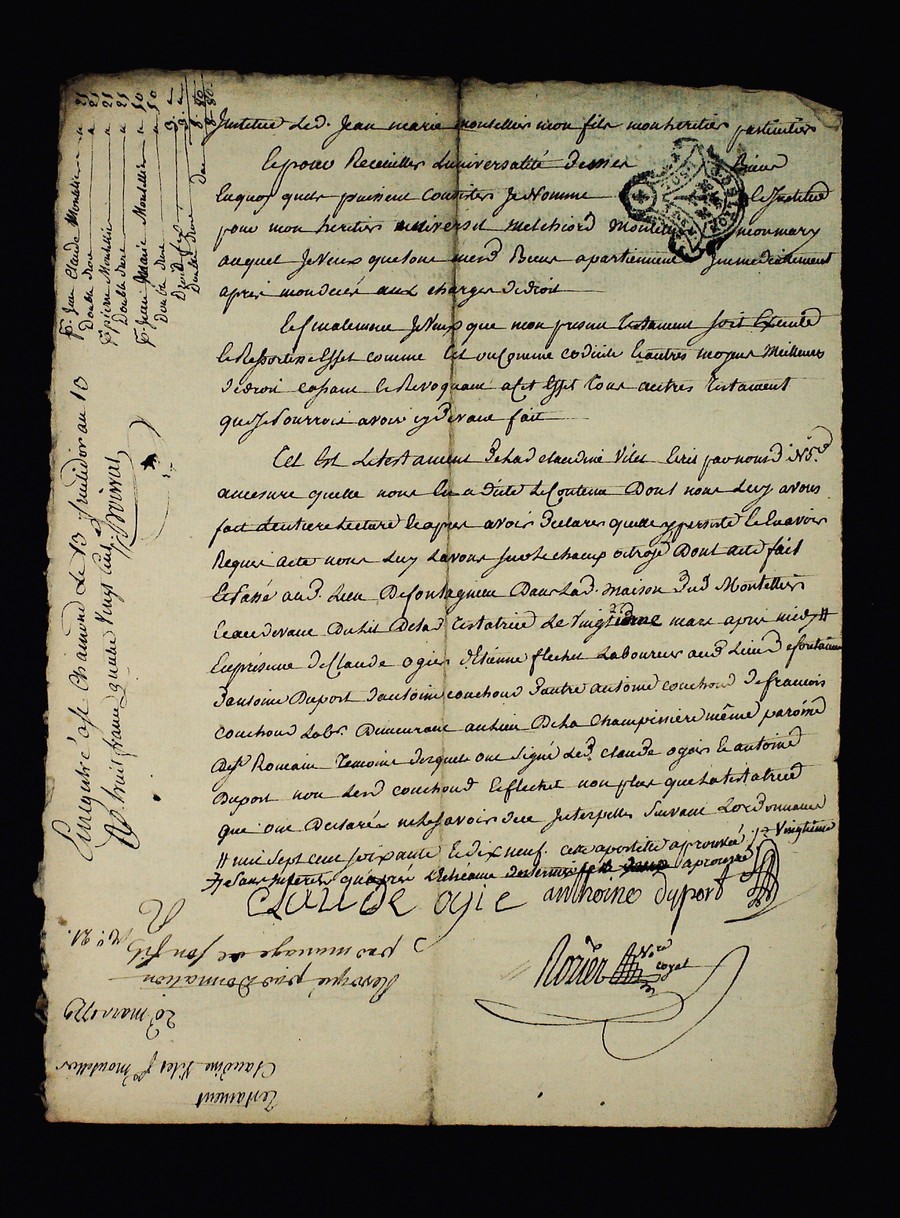 Institue led. Jean marie montellier mon fils mon heritier particulier
Et pour Recueillir Luniversalité demes Biens
En quoy quils puissent Consister Je Nomme et Institue
pour mon heritier universel melchiord montellier mon mary
auquel Je Veux que tous mesd Biens apartiennent Immediatement
apres mon decés aux charges de droit
Et finalement Je Veux que mon presént testament soit Executé
Et Ressorte son Effet comme tel ou Comme codicile et autres moyens Meilleurs
de droit Cassant et Revoquant a Cet Effet tous autres testament
que Je Pourrois avoir cy devant fait
Cet Est le testament de lad claudine Vilet Ecrit par nousd N.re
a mesure quelle nous En a dicté le Contenu Dont nous Luy avons
fait Lentiere Lecture Et apres avoir declaré quelle y persiste et En avoir
Requis acte nous Luy Lavons sur le champ octroyé Dont acte fait
Et Passé aud. Lieu De fontagneu Dans Lad. maison dud Montellier
Et au devant Du Lit De lad testatrice Le Vingt mars apres midy #
En presénce de Claude ogier d'Etienne flechet Laboureur aud Lieu de
d'antoine Duport d'antoine couchoud d'autre antoine couchoud de francois
couchoud Labr. Demeurant au Lieu De La Champinière même paroisse
de St Romain temoins desquels ont signé Led. claude ogier et antoine
Duport non Lesd couchoud Et flechet non plus que la testatrice
que ont Declaré ne le savoir de ce Interpellés Suivant Lordonnance
# mil sept cent soixante et dix neuf. cette apostille aprouvée Vingtieme
aprouvé
CLAUDE OGIE anthoine duport
Rozier No.re royal
P. Jean Claude Montellier a 25
Double droit a 25
P. pierre Montellier a 25
Double droit a 25
P. Jean Marie Montellier a 10
Double droit a 10
Enregistré a St Chamond Le 13 fructidor an 10
R huit francs quatre vingt cent
Testament
Claudine Vilet fe montellier
20 mars 1779
Revoqué par Donation
par mariage de son fils
No. 21.